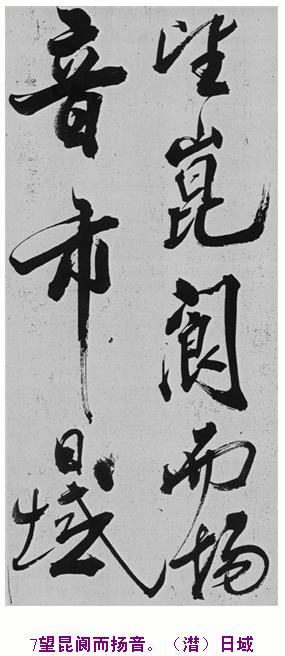 望崑閬而揚
音帀日域
7望昆阆而扬音。（潜）日域